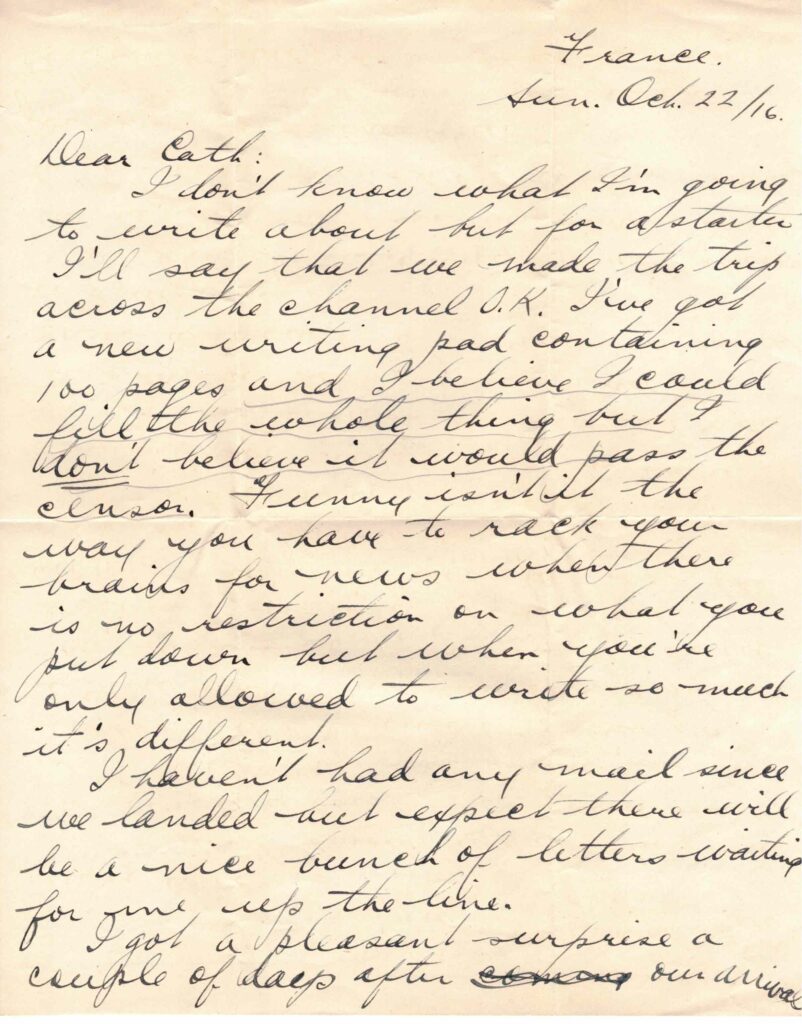 France.
Sun. Oct. 22/16.
Dear Cath:
I don't know what I'm going
to write about but for a starter
I'll say that we made the trip
across the channel O.K. I've got
a new writing pad containing
100 pages and I believe I could
fill the whole thing but I
don't believe it would pass the
censor. Funny isn't it the
way you have to rack your
brains for news when there
is no restriction on what you
put down but when you're
only allowed to write so much
it's different.
I haven't had any mail since
we landed but expect there will
be a nice bunch of letters waiting
for me up the line.
I got a pleasant surprise a
couple of days after coming our arrival